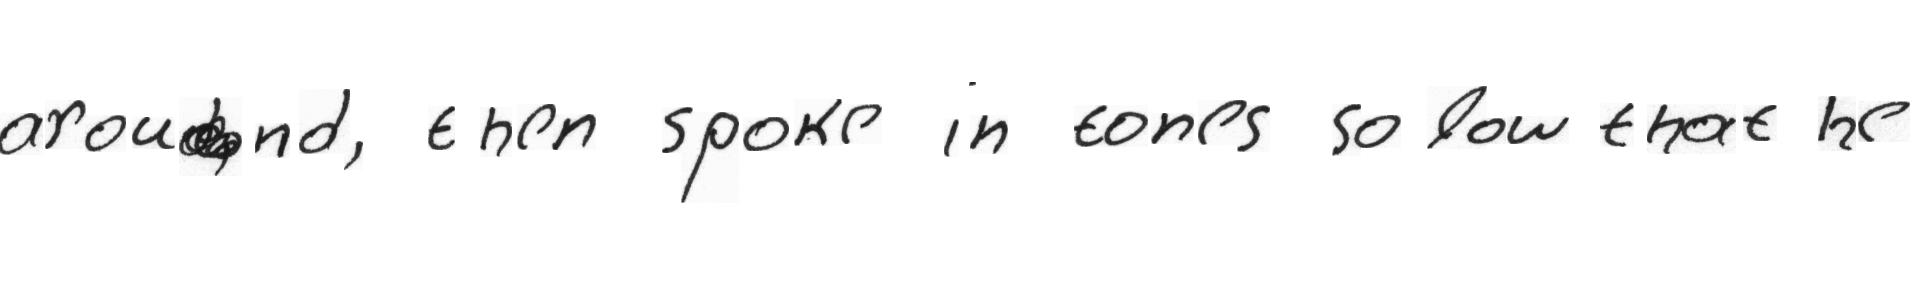 around, then spoke in tones so low that he